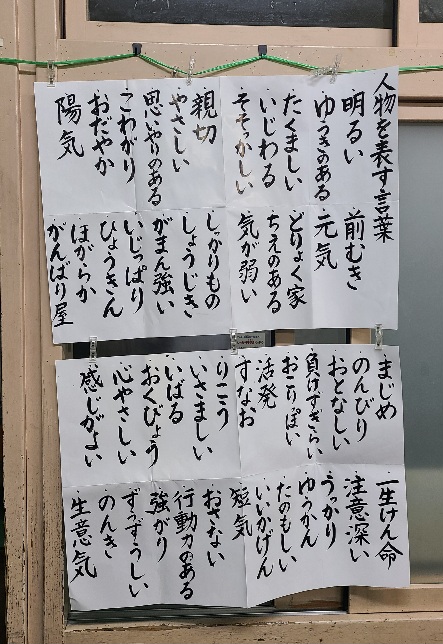 人物を表す言葉
明るい
ゆうきのある
たくましい
いじわる
そそっかしい
親切
やさしい
思いやりのある
こわがり
おだやか
陽気
前むき
元気
どりょく家
ちえのある
気が弱い
しっかりもの
しょうじき
がまん強い
いじっぱり
ひょうきん
ほがらか
がんばり屋
まじめ
のんびり
おとなしい
負けずぎらい
おこりっぽい
活発
すなお
りこう
いさましい
いばる
おくびょう
心やさしい
感じがよい
一生けん命
注意深い
うっかり
ゆうかん
たのもしい
いいかげん
短気
おさない
行動力のある
強がり
ずうずうしい
のんき
生意気